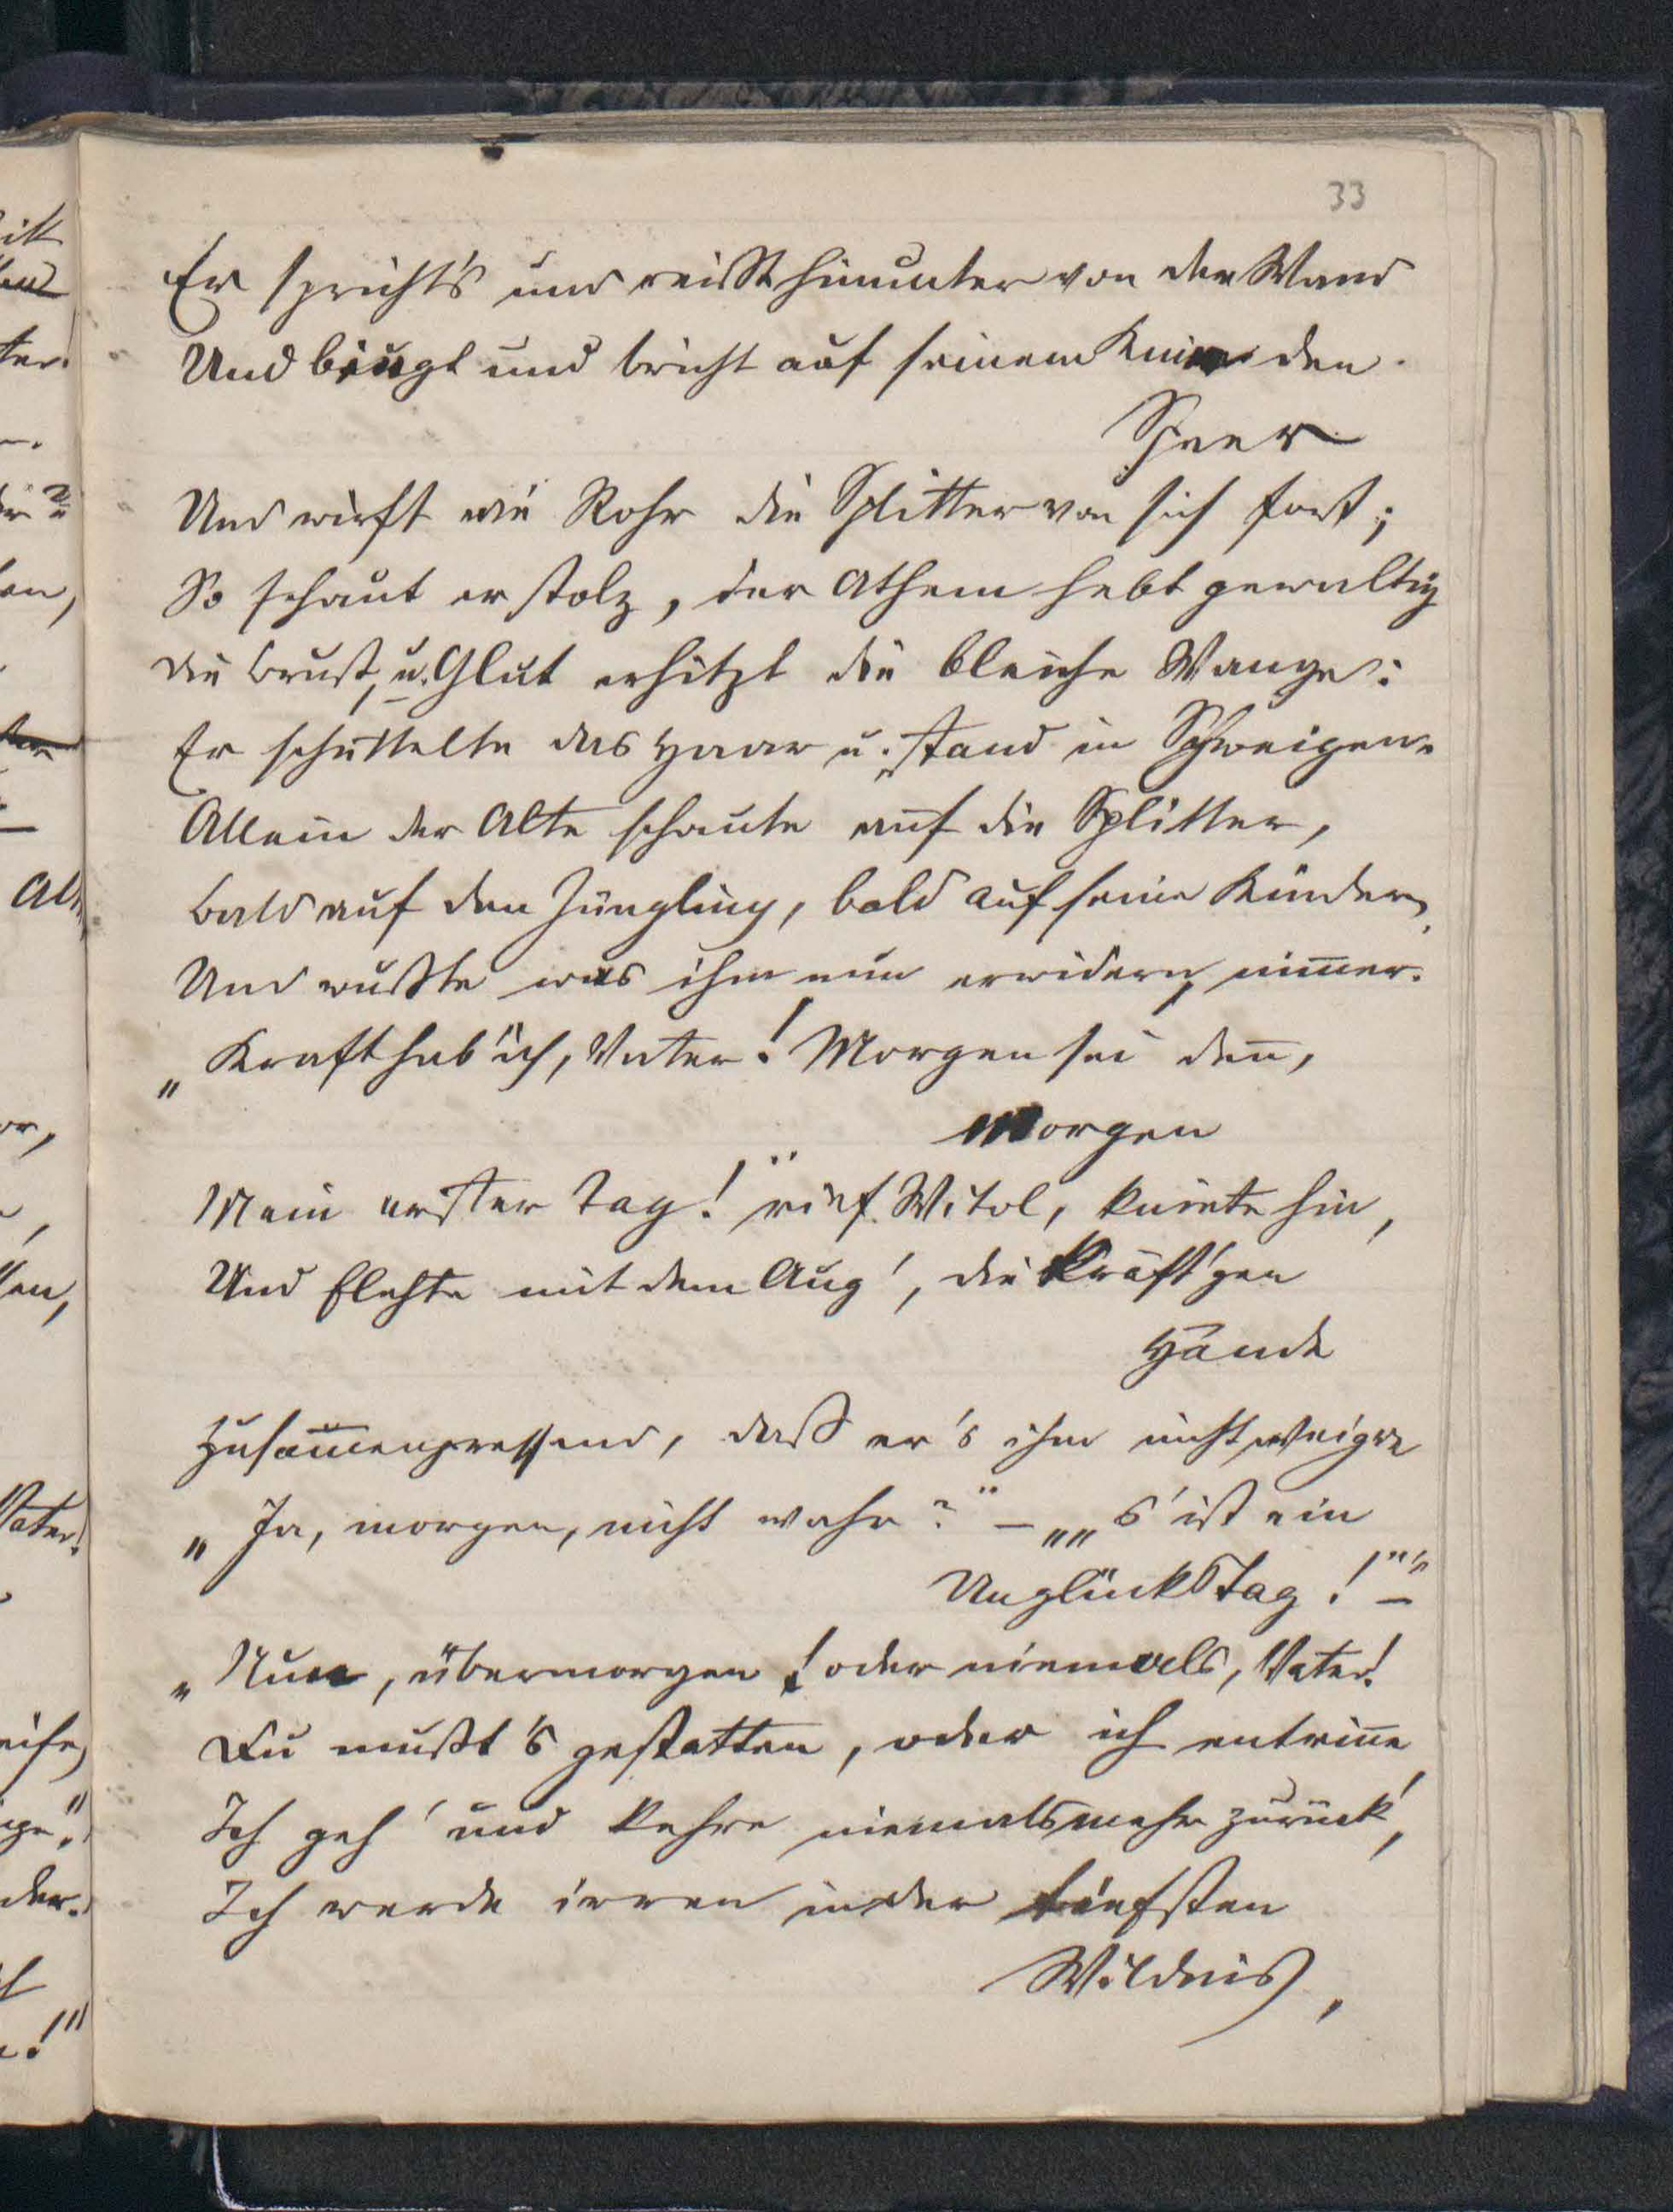 33
Er spricht's und reißt hinunter von der Wand
Und beugt und bricht auf seinem Knie den
Speer
Und wirft wie Rohr die Splitter von sich fort;
So schaut er stolz, der Athem hebt gewaltig
die Brust, u. Glut erhitzt die bleiche Wange:
Er schüttelte das Haar u. stand in Schweigen.
Allein der Alte schaute auf die Splitter,
bald auf den Jüngling, bald auf seine Kinder,
Und wußte was ihm nun erwidern, nim̄er.
„Kraft hab' ich, Vater! Morgen sei den̄,
Morgen
Mein erster Tag!" rief Witol, kniete hin,
Und flehte mit dem Aug', die kräft'gen
Hände
Zusam̄enpressend, daß er's ihm nicht weigre
„Ja, morgen, nicht wahr?" – „„s' ist ein
Unglückstag!"" –
„Nun, übermorgen! oder niemals, Vater!
Du mußt's gestatten, oder ich entrin̄e
Ich geh' und kehre niemals mehr zurück,
Ich werde irren in der tiefsten
Wildnis,